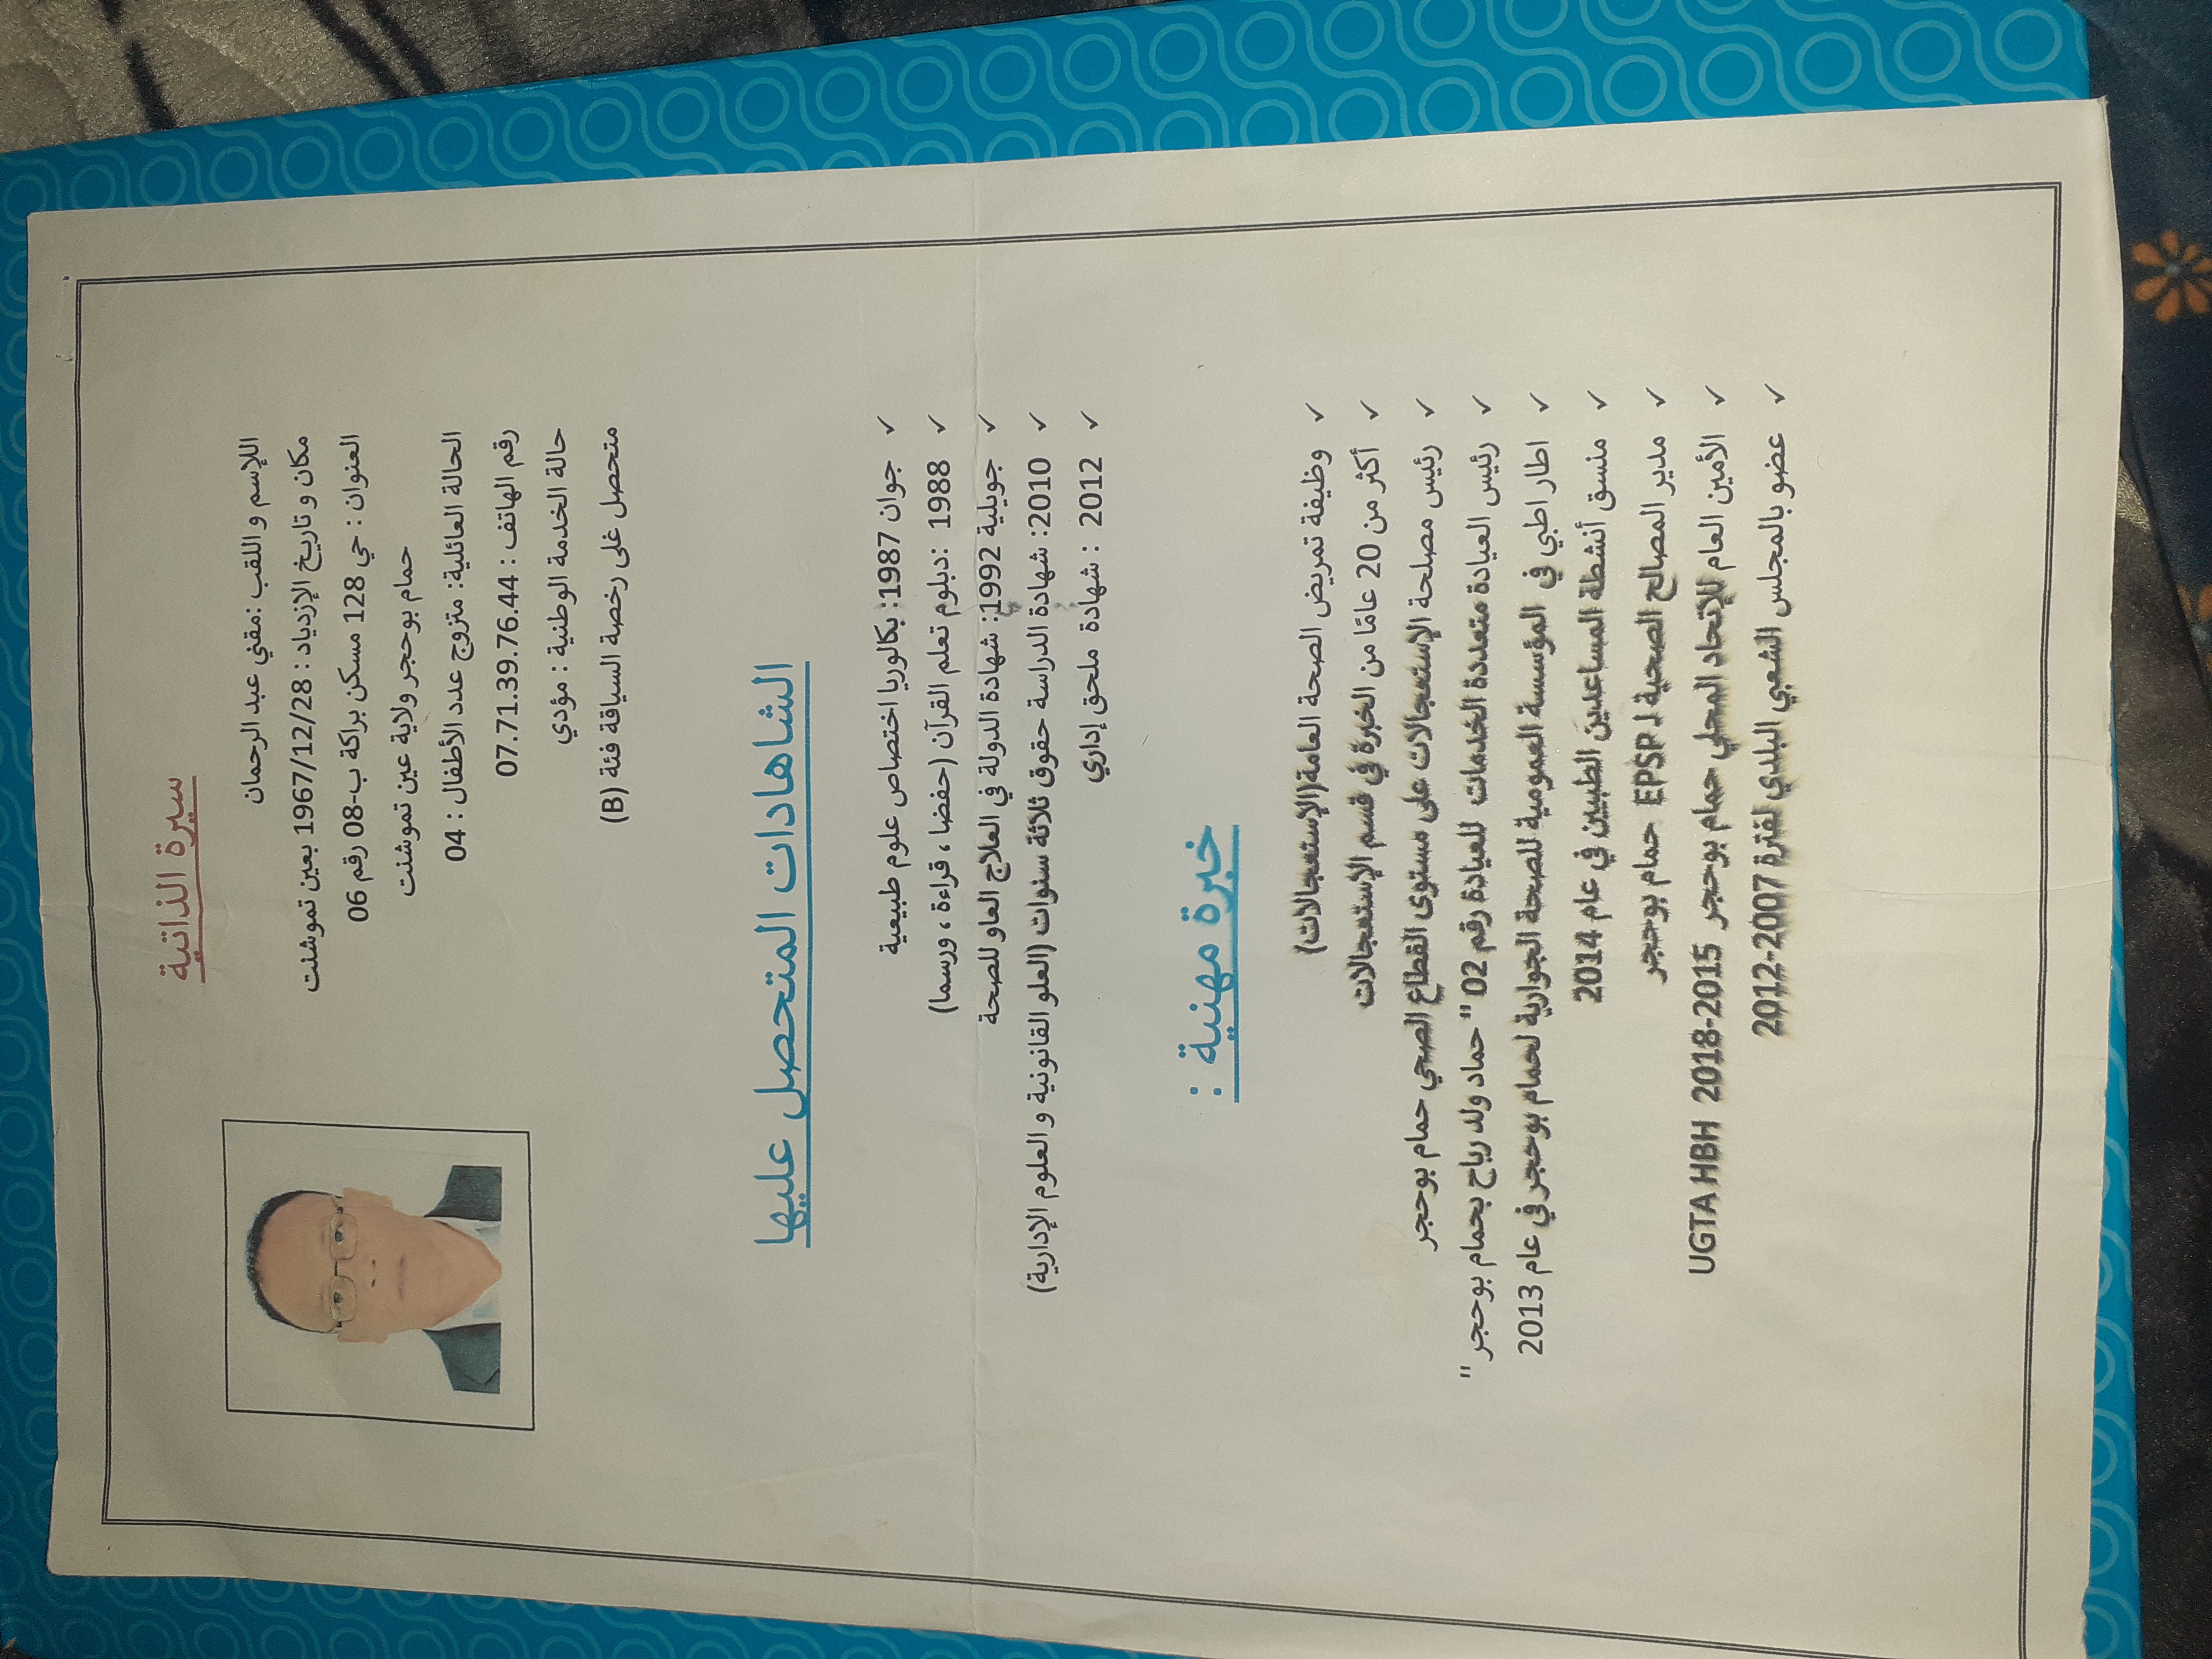 سيرة الذاتية
اللإسم و اللقب :مقني عبد الرحمان
مكان و تاريخ الإزدياد : 1967/12/28 بعين تموشنت
العنوان : حي 128 مسكن براكة ب-08 رقم 06
حمام بوحجر ولاية عين تموشنت
الحالة العائلية: متزوج عدد الأطفال : 04
رقم الهاتف : 07.71.39.76.44
حالة الخدمة الوطنية : مؤدي
متحصل غلى رخصة السياقة فئة (B)
الشاهادات المتحصل عليها
✓ جوان 1987: بكالوريا اختصاص علوم طبيعية
✓ 1988 :دبلوم تعلم القرآن (حفضا ، قراءة ، ورسما)
✓ جويلية 1992: شهادة الدولة في العلاج العاو للصحة
✓ 2010: شهادة الدراسة حقوق ثلاثة سنوات (العلو القانونية و العلوم الإدارية)
✓ 2012 : شهادة ملحق إداري
خبرة مهنية :
✓ وظيفة تمريض الصحة العامة(الإستعجالات)
✓ أكثر من 20 عامًا من الخبرة في قسم الإستعجالات
✓ رئيس مصلحة الإستعجالات على مستوى القطاع الصحي حمام بوحجر
✓ رئيس العيادة متعددة الخدمات للعيادة رقم 02 " حماد ولد رباح بحمام بوحجر "
✓ اطار اطبي في المؤسسة العمومية للصحة الجوارية لحمام بوحجر في عام 2013
✓ منسق أنشطة المساعدين الطبيين في عام 2014
✓ مدير المصالح الصحية لـ EPSP حمام بوحجر
✓ الأمين العام للإتحاد المحلي حمام بوحجر UGTA HBH 2018-2015
✓ عضو بالمجلس الشعبي البلدي لفترة 2007-2012